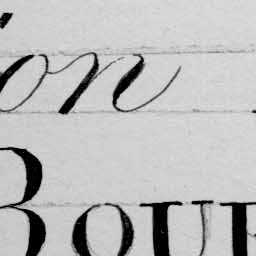 on
Bour